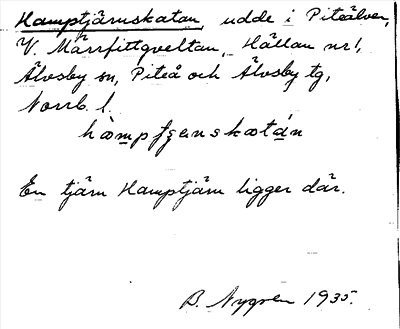 Hamptjärnskatan, udde i Piteälven,
V. Märrfittqveltan, Hällan nr 1,
Älvsby sn, Piteå och Älvsby tg,
Norrb. l.
En tjärn Hamptjärn ligger där.
B. Nygren 1935.